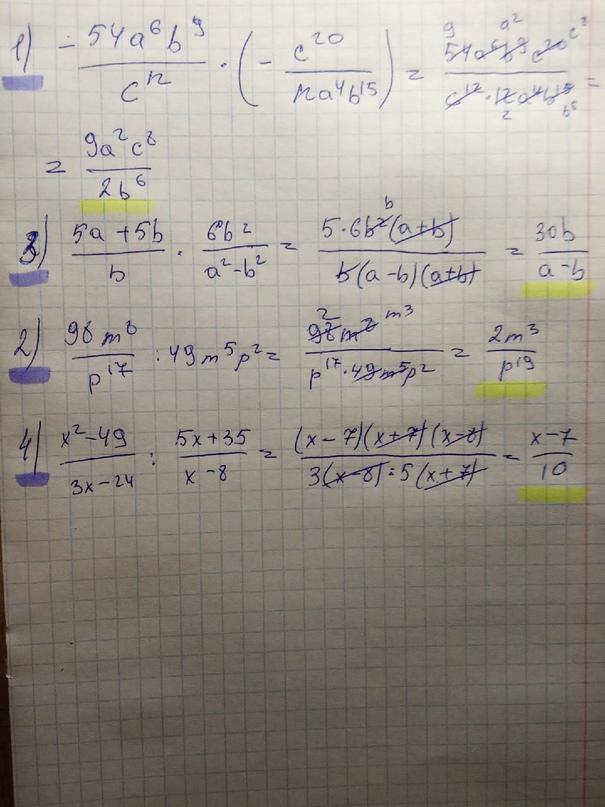 1) - 54a⁶b⁹/c¹² · (- c²⁰/12a⁴b¹⁵) = 54a⁶b⁹c²⁰/c¹²·12a⁴b¹⁵ =
= 9a²c⁸/2b⁶
3) 5a+5b/b · 6b²/a²-b² = 5·6b²(a+b)/b(a-b)(a+b) = 30b/a-b
2) 98m⁸/p¹⁷ : 49m⁵p² = 98m⁸/p¹⁷·49m⁵p² = 2m³/p¹⁹
4) x²-49/3x-24 : 5x+35/x-8 = (x-7)(x+7)(x-8)/3(x-8)·5(x+7) = x-7/10